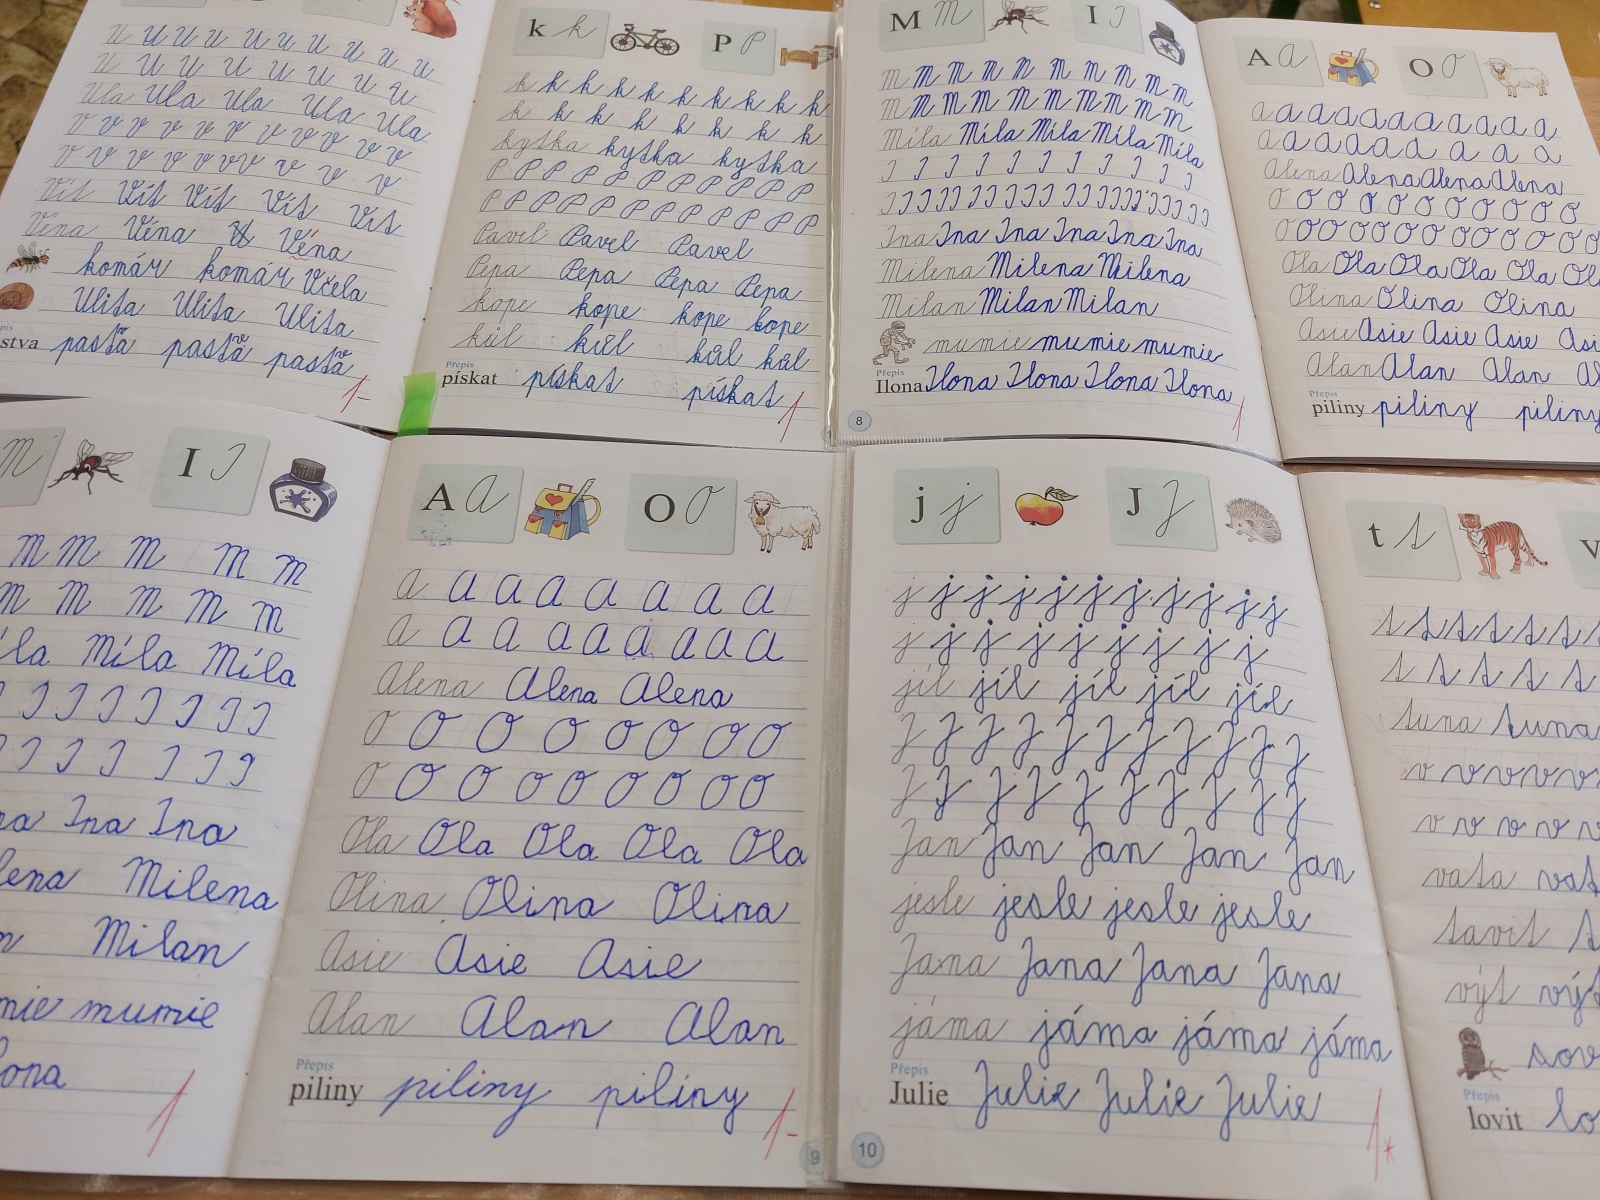 U U U U U U U U U U
U U U U U U U U U
Ula Ula Ula Ula Ula
v v v v v v v v v v
v v v v v v v v v v
Vít Vít Vít Vít Vít
Věna Věna Věna
komár komár Včela
Ulita Ulita Ulita
stva pasta pasta pasta
1-
k k P P
k k k k k k k k k k
k k k k k k k k
kytka kytka kytka
P P P P P P P P P P P
P P P P P P P P P P P
Pavel Pavel Pavel
Pepa Pepa Pepa Pepa
kope kope kope kope
kůl kůl kůl kůl
Přepis
pískat pískat pískat
1
M M I I
M M M M M M M M M
M M M M M M M M M
Míla Míla Míla Míla Míla
I I I I I I I I I
I I I I I I I I I I I I I I I I
Ina Ina Ina Ina Ina Ina
Milena Milena Milena
Milan Milan Milan
mumie mumie mumie
Přepis
Ilona Ilona Ilona Ilona Ilona
8
1
A A O O
A A A A A A A A A A
A A A A A A A A A
Alena Alena Alena Alena
O O O O O O O O O O
O O O O O O O O O O O
Ola Ola Ola Ola Ola
Olina Olina Olina
Asie Asie Asie Asie
Alan Alan Alan
Přepis
piliny piliny piliny
m I I
M M M M M
M M M M M
Míla Míla
I I I I I I I
I I I I I I
Ina Ina
Milena
Milan
mumie
1
A A O O
A A A A A A A A
A A A A A A A A A
Alena Alena Alena
O O O O O O O O
O O O O O O O O
Ola Ola Ola Ola Ola
Olina Olina Olina
Asie Asie Asie
Alan Alan Alan
Přepis
piliny piliny piliny
1-
9
j j J J
j j j j j j j j j j j
j j j j j j j j j
jíl jíl jíl jíl jíl
J J J J J J J J J J
J J J J J J J J J
Jan Jan Jan Jan Jan
jesle jesle jesle jesle
Jana Jana Jana Jana
jáma jáma jáma jáma
Přepis
Julie Julie Julie Julie
10
1*
t t v
t t t t t t t
t t t t t t
tuna tuna
v v v v v v
v v v v v
vata vat
tavit t
výt výt
sov
Přepis
lovit lo